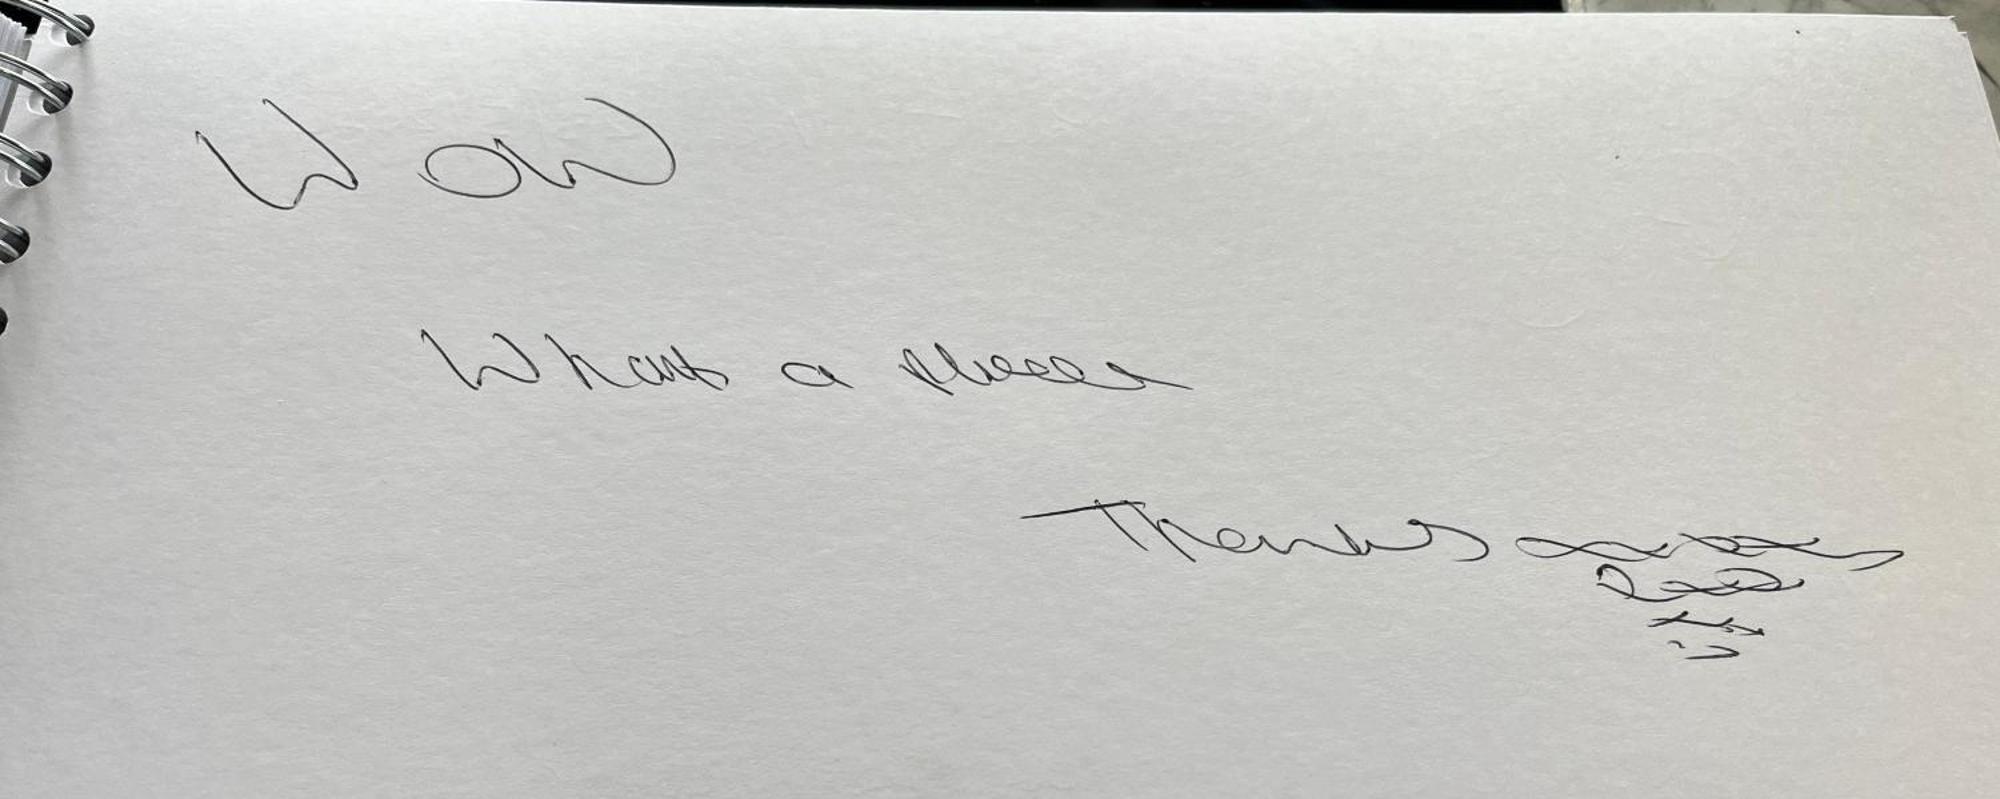 WOW
What a place
Thanks